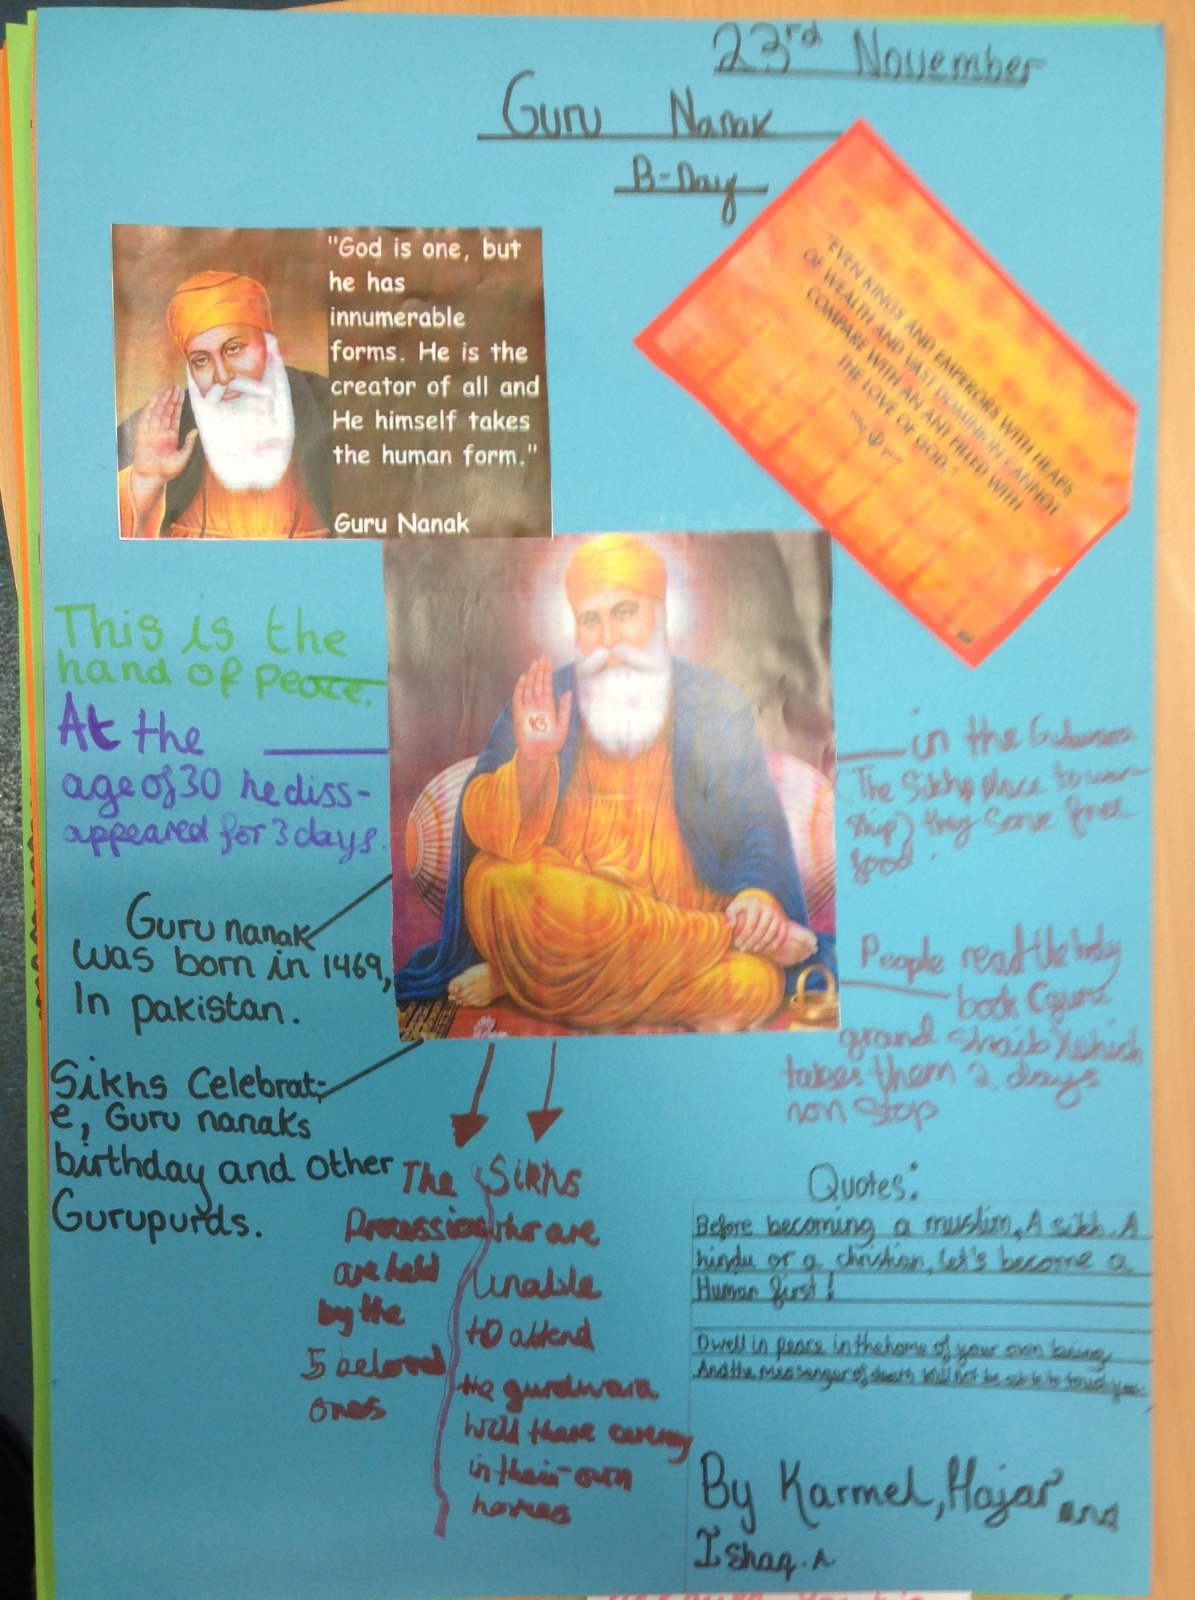 23rd November
Guru Nanak
B-Day
"God is one, but
he has
innumerable
forms. He is the
creator of all and
He himself takes
the human form."
Guru Nanak
"EVEN KINGS AND EMPERORS WITH HEAPS
OF WEALTH AND VAST DOMINION CANNOT
COMPARE WITH AN ANT FILLED WITH
THE LOVE OF GOD."
This is the
hand of peace.
At the
age of 30 he diss-
appeared for 3 days.
Guru nanak
was born in 1469,
In pakistan.
Sikhs Celebrat-
e, Guru nanaks
birthday and other
Gurupurds.
ੴ
in the
The Sikhs place to wor-
ship) they serve free
food.
People read the holy
book (guru
grand shaib) which
takes them 2 days
non stop
The
Procession
are held
by the
5 beloved
ones
Sikhs
who are
unable
to attend
the gurdwara
will there
in their own
homes
Quotes:
Before becoming a muslim, A sikh. A
hindu or a christian, let's become a
Human first!
Dwell in peace in the home of your own being,
And the messenger of death will not be able to touch you.
By Karmel, Hajar and
Ishaq. A